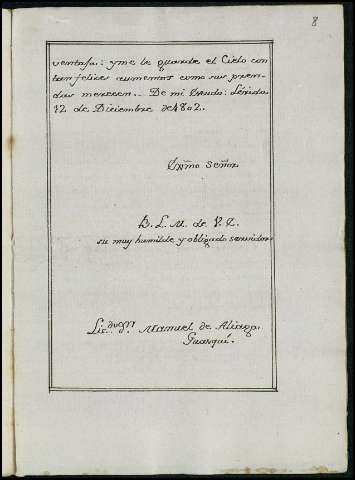 8
ventosa: y me le guarde el Cielo con
tan felices aumentos como sus pren-
das merecen. De mi Estudo: Lérida
12 de Diciembre de 1802.
Exmo Señor
B. L. M. de V. E.
su muy humilde y obligado servidor
Lic.do Dn Manuel de Aliaga.
Guasqui.